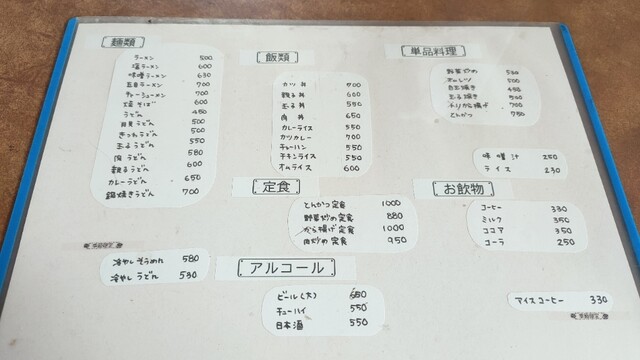 麺類
ラーメン 500
塩ラーメン 600
味噌ラーメン 630
五目ラーメン 700
チャーシューメン 700
焼そば 600
うどん 450
月見うどん 500
きつねうどん 500
玉子うどん 550
肉うどん 580
親子うどん 600
カレーうどん 650
鍋焼きうどん 700
冷やしそうめん 580
冷やしうどん 530
飯類
カツ丼 700
親子丼 600
玉子丼 550
肉丼 650
カレーライス 550
カツカレー 700
チャーハン 550
チキンライス 550
オムライス 600
定食
とんかつ定食 1000
野菜炒め定食 880
から揚げ定食 1000
肉炒め定食 950
アルコール
ビール(大) 650
チューハイ 550
日本酒 550
単品料理
野菜炒め 530
オムレツ 500
目玉焼き 450
玉子焼き 500
とりから揚げ 700
とんかつ 750
味噌汁 250
ライス 230
お飲物
コーヒー 330
ミルク 350
ココア 350
コーラ 250
アイスコーヒー 330